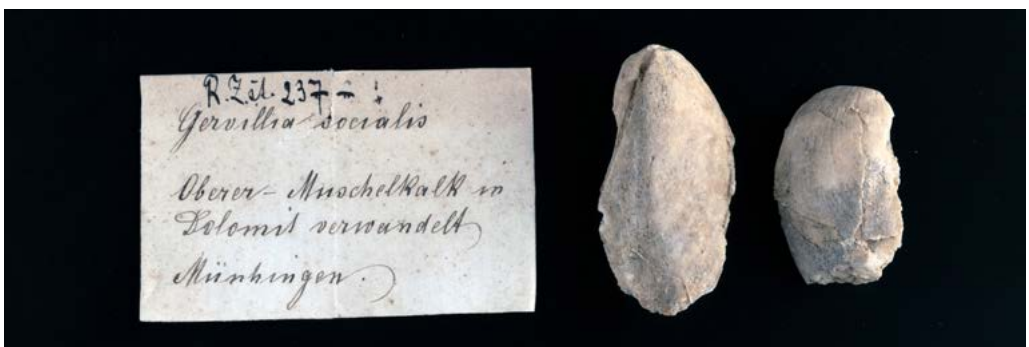 R.Z.ät. 237 = !
Gervillia socialis
Oberer - Muschelkalk in
Dolomit verwandelt
Münhingen.